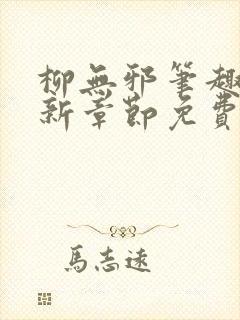 柳無邪筆趣
新章節免費
馬志遠